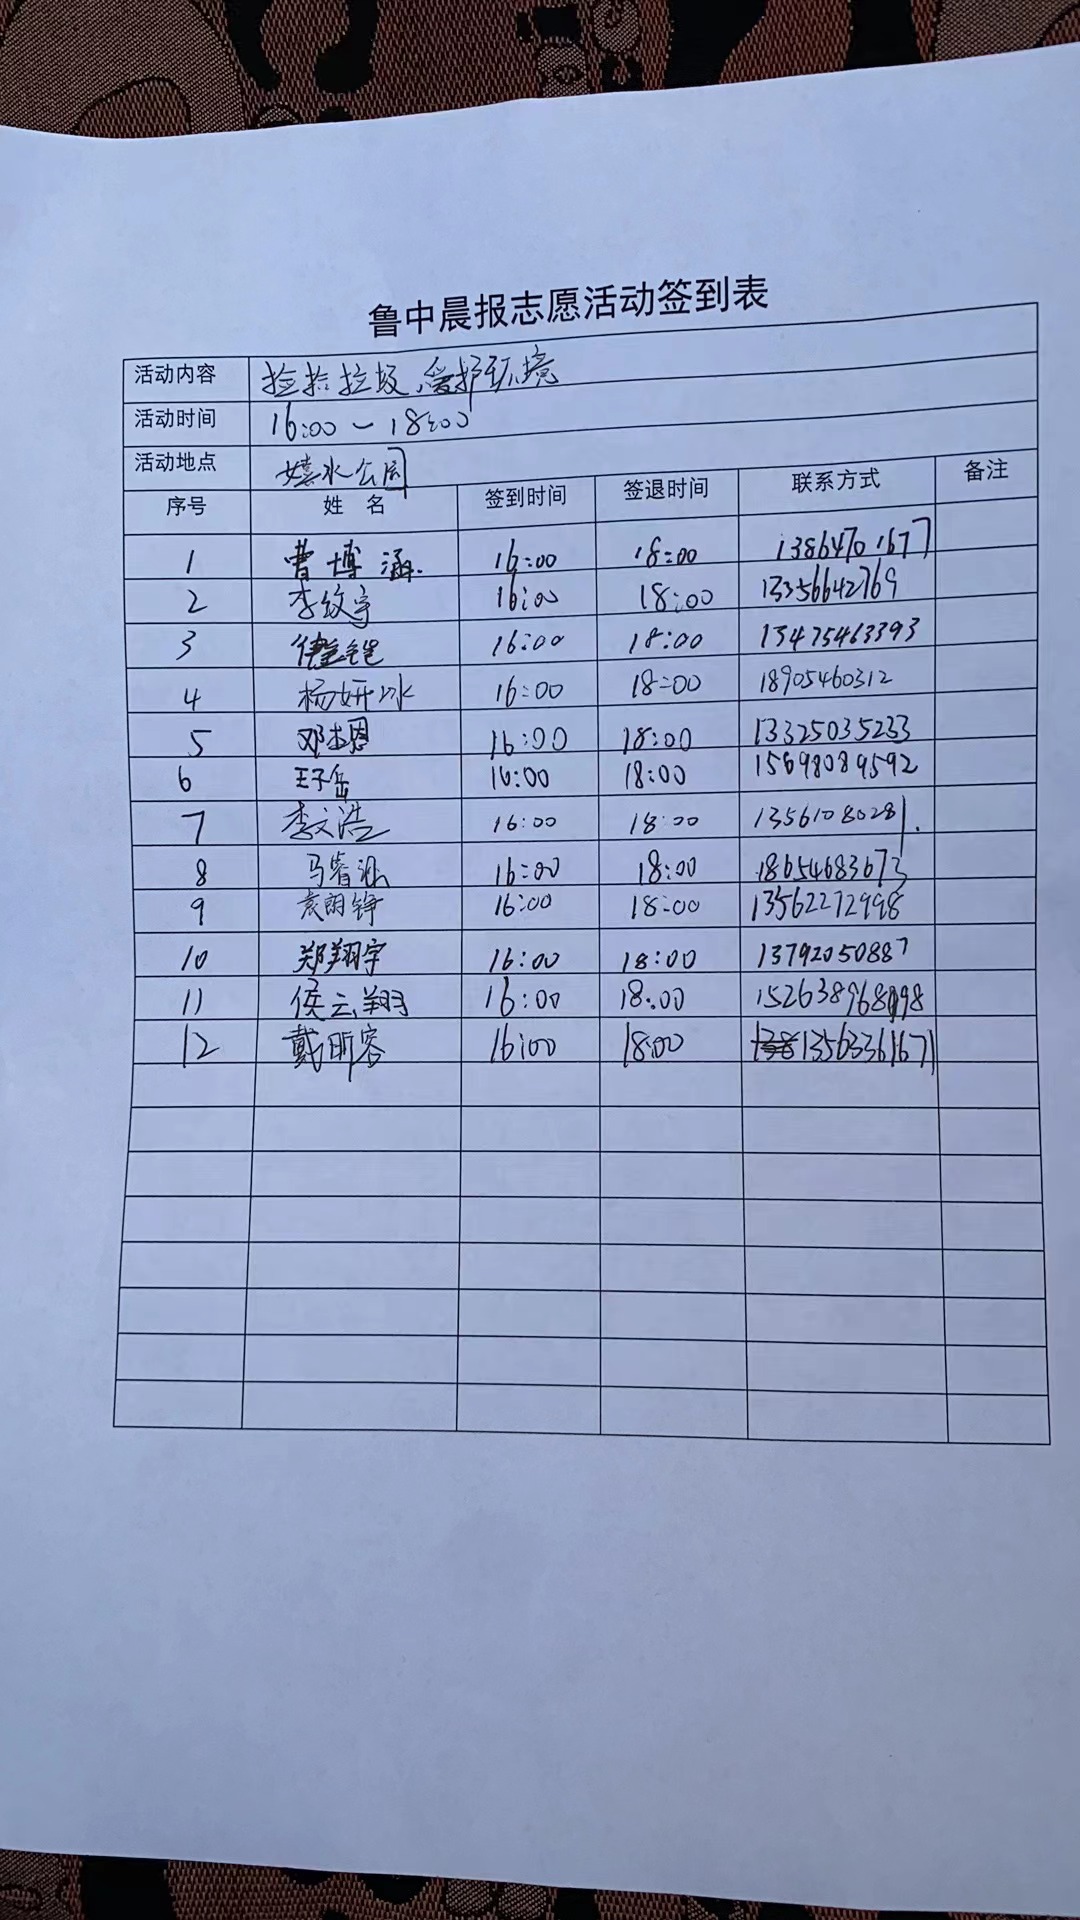 鲁中晨报志愿活动签到表
活动内容 捡拾垃圾、爱护环境
活动时间 16:00-18:00
活动地点 嬉水公园
序号 姓 名 签到时间 签退时间 联系方式 备注
1 曹博涵. 16:00 18:00 13864701677
2 李纹宇 16:00 18:00 13356642769
3 16:00 18:00 13475463393
4 杨妍冰 16:00 18:00 18905460312
5 邓杰恩 16:00 18:00 13325035233
6 王子岳 16:00 18:00 15698089592
7 李文浩 16:00 18:00 13561080281.
8 马睿涵 16:00 18:00 18654683673
9 袁朗铮 16:00 18:00 13562272998
10 郑翔宇 16:00 18:00 13792050887
11 侯云翔 16:00 18:00
12 戴昕容 16:00 18:00 13563361671